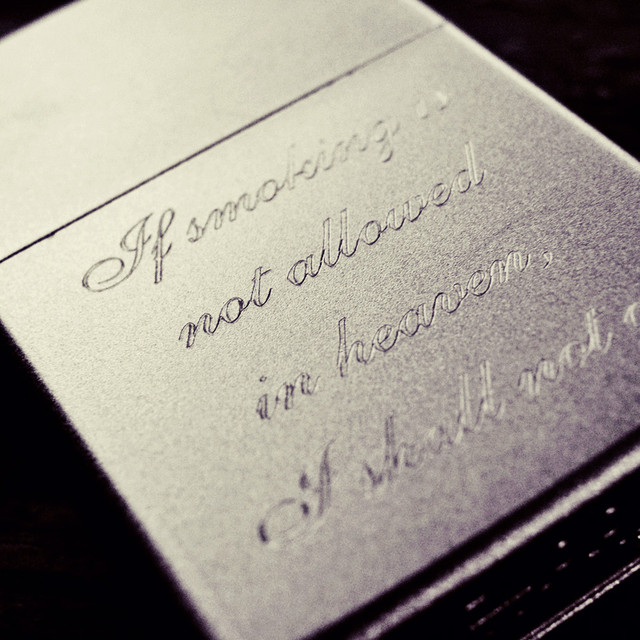 If smoking is
not allowed
in heaven,
I shall not